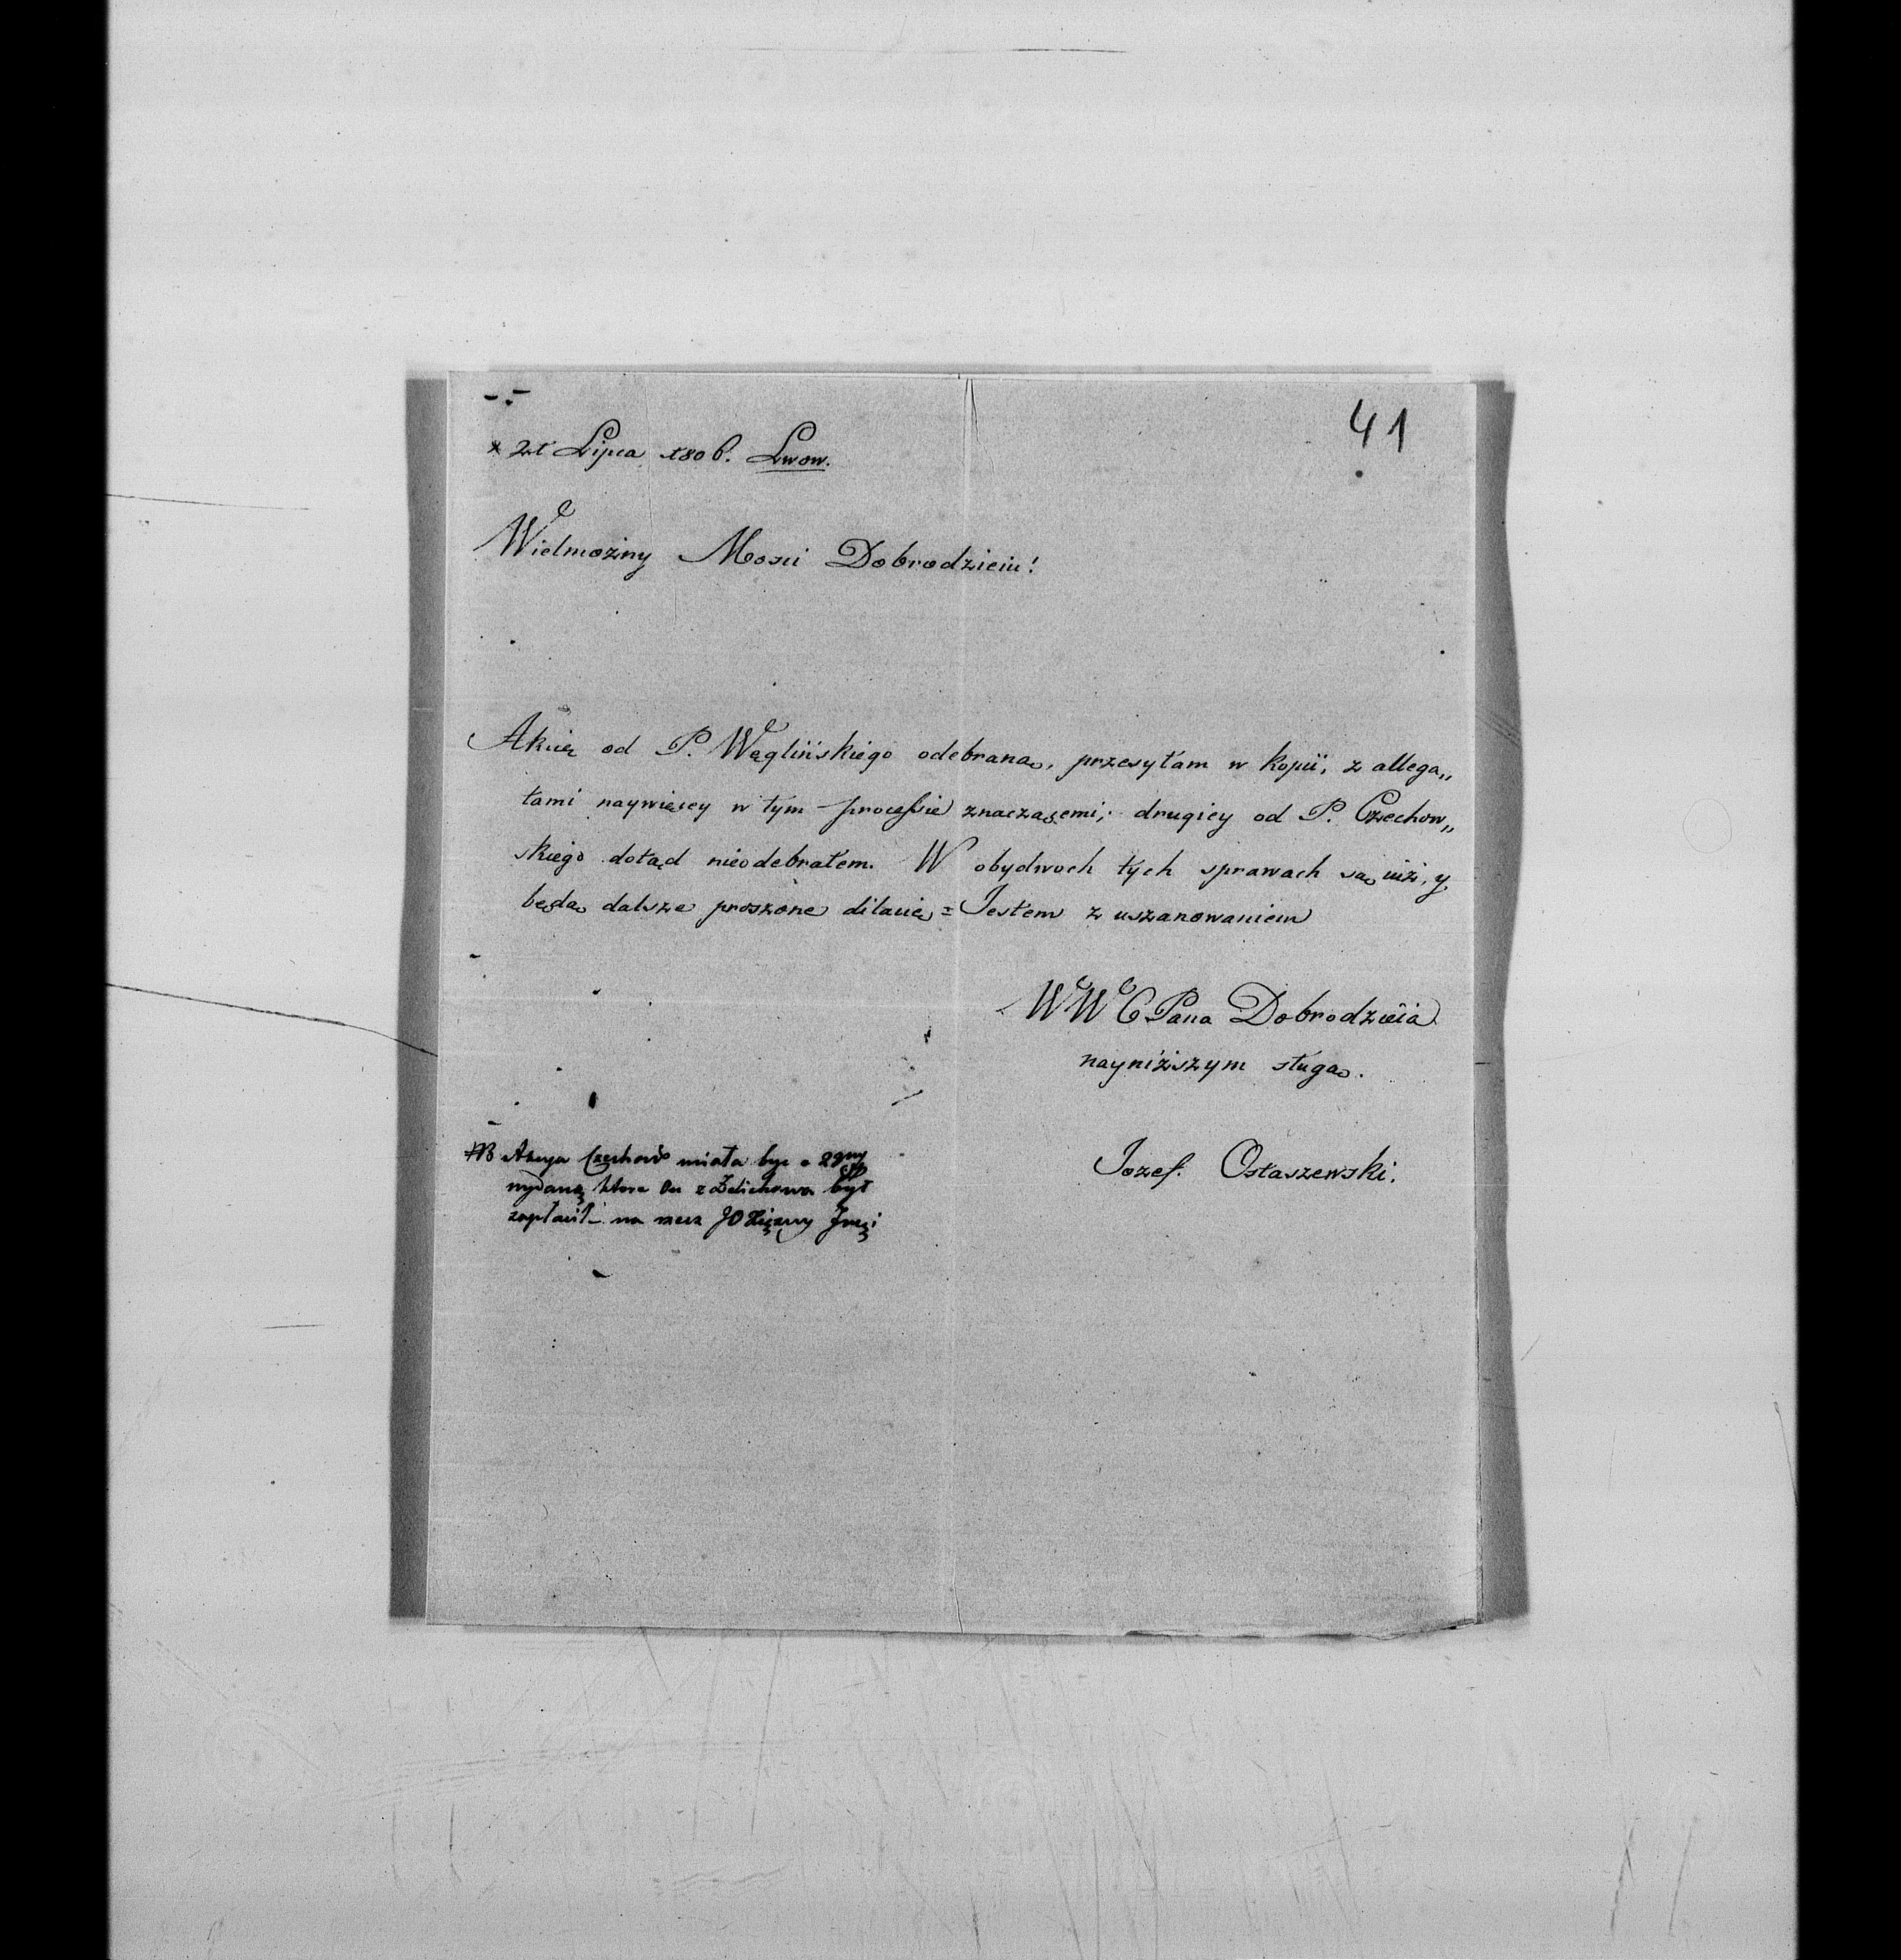 41
* 21 Lipca 1806. Lwow.
Wielmożny Mosci Dobrodzieiu!
Akcię od P. Węglińskiego odebraną, przesyłam w kopii, z allega„
tami naywięcey w tym processie znaczącemi; drugiey od P. Czechow„
skiego dotąd nieodebrałem. W obydwoch tych sprawach są iuż, y
będą dalsze proszone dilacie = Jestem z uszanowaniem
WW Pana Dobrodzieia
nayniższym sługą.
Jozef Ostaszewski.
NB Akcya miała byc o
wydaną ktore On z Żelichowa był
zapłacił na rzecz JO